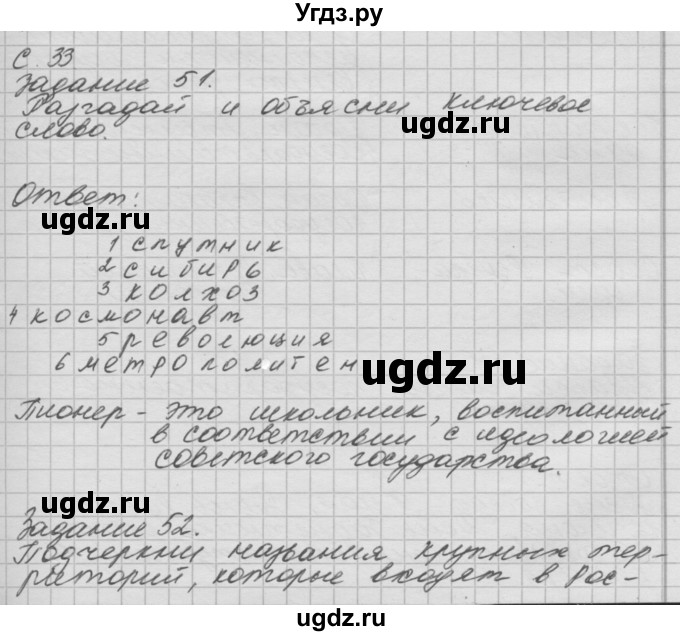 Угдз.ру
С. 33
Задание 51.
Разгадай и объясни ключевое
слово.
ugdz.ru
Ответ:
ugdz.ru
1 спутник
2 сибирь
3 колхоз
4 космонавт
5 революция
6 метрополитен
ugdz.ru
Пионер - это школьник, воспитанный
в соответствии с идеологией
советского государства.
ugdz.ru
Задание 52.
Подчеркни названия крупных тер-
риторий, которые входят в Рос-
ugdz.ru